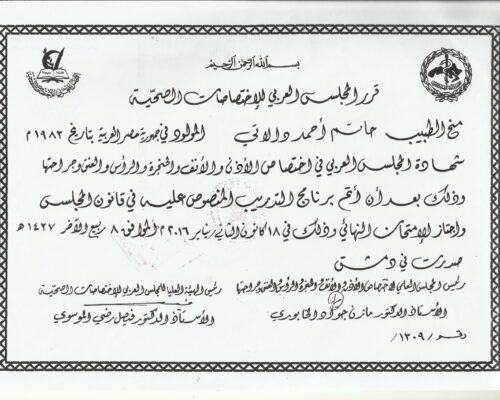 بسم الله الرحمن الرحيم
قرر المجلس العربي للاختصاصات الصحيّة
منح الطبيب حاتم أحمد دالاتي المولود في جمهورية مصر العربية بتاريخ ١٩٨٢ م
شهادة المجلس العربي في اختصاص الأذن والأنف والحنجرة والرأس والعنق وجراحتها
وذلك بعد أن أتم برنامج التدريب المنصوص عليه في قانون المجلس
واجتاز الإمتحان النهائي وذلك في ١٨ كانون الثاني / يناير ٢٠١٦ م الموافق ٨ ربيع الآخر ١٤٣٧ هـ
صدرت في دمشق
رئيس المجلس العلمي لاختصاص الأذن والأنف والحنجرة والرأس والعنق وجراحتها
رئيس الهيئة العليا للمجلس العربي للإختصاصات الصحية
الأستاذ الدكتور مازن جواد الخابوري
الأستاذ الدكتور فيصل رضي الموسوي
رقم / ١٣٠٩ /